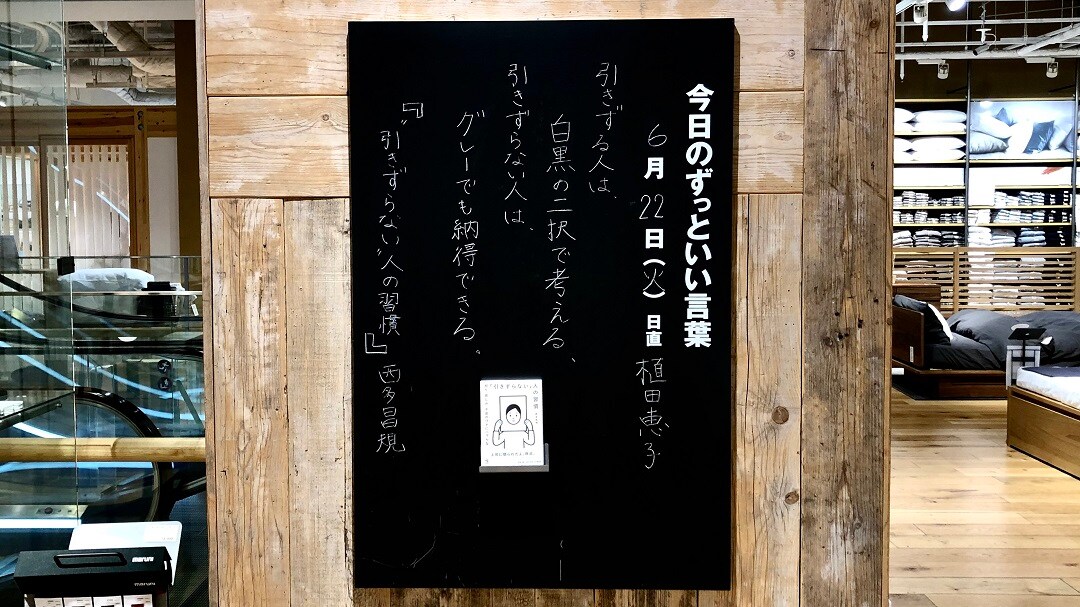 今日のずっといい言葉
6月22日(火)日直 植田恵子
引きずる人は、
白黒の二択で考える、
引きずらない人は、
グレーでも納得できる。
『"引きずらない"人の習慣』西多昌規
"引きずらない"人の習慣
maruni